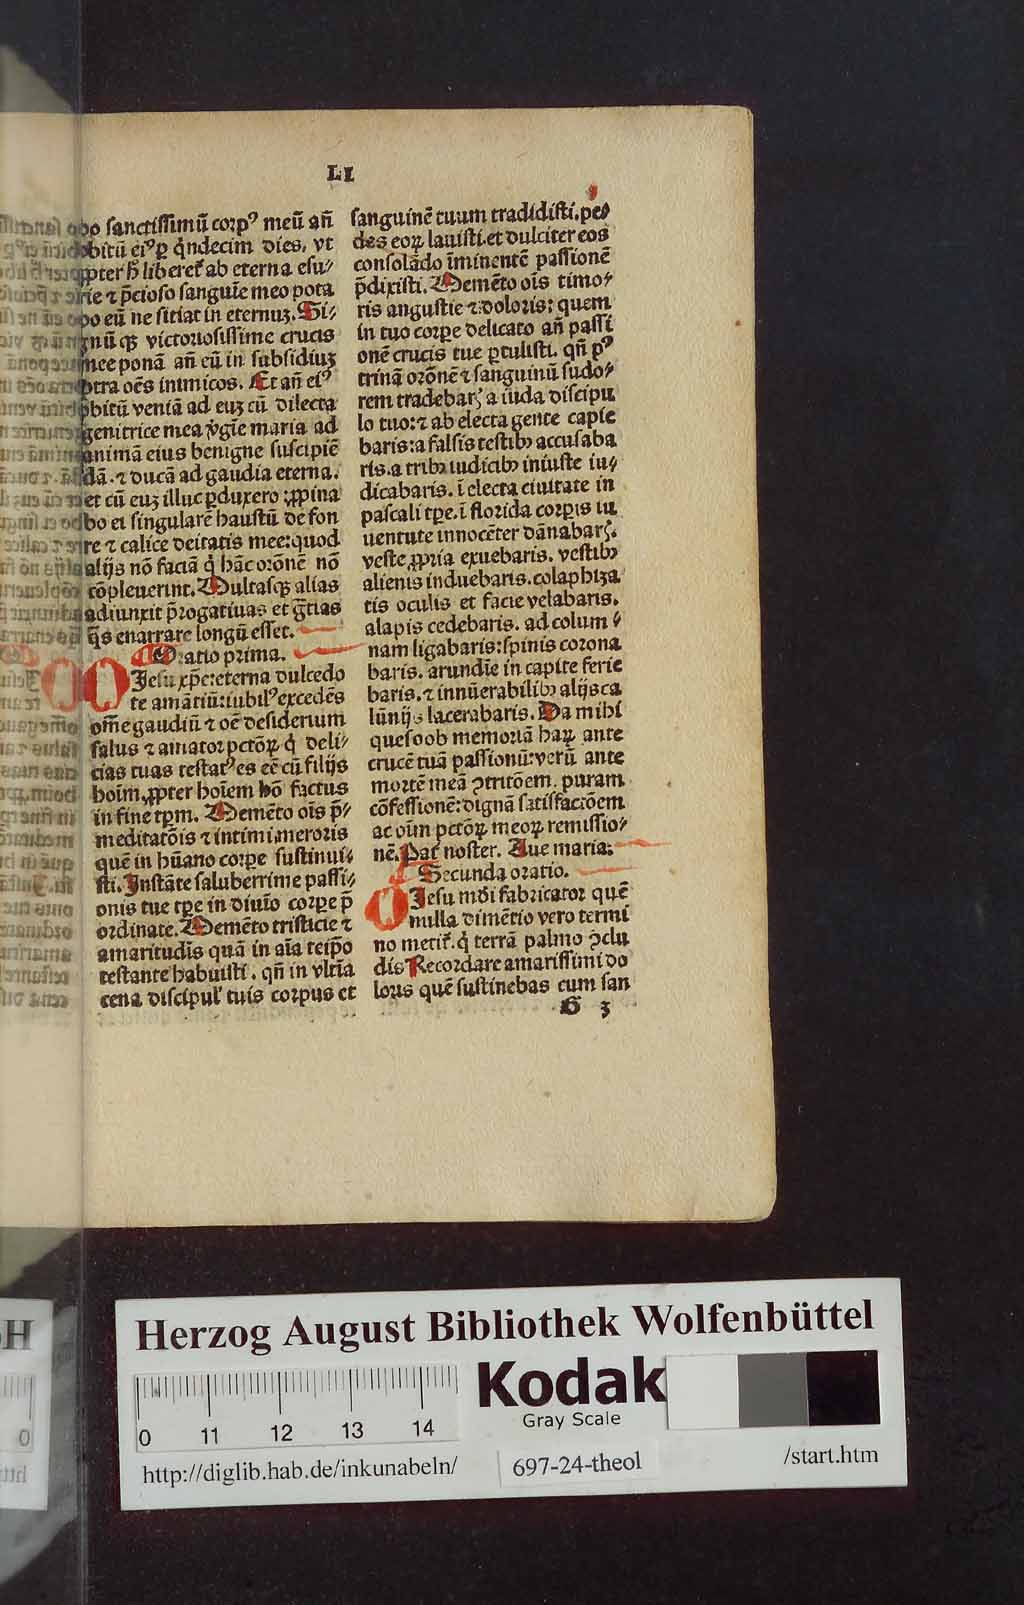 LI
bo sanctissimū corpꝰ meū añ
obitū eiꝰ ꝑ q̇ndecim dies, vt
ꝓpter ħ liberet᷑ ab eterna esu⸗
rie ⁊ p̄cioso sanguīe meo pota
bo eū ne sitiat in eternuꝫ. Si⸗
gnū qꝫ victoriosissime crucis
mee ponā añ eū in subsidiuꝫ
ꝯtra oēs inimicos. Et añ eiꝰ
obitū veniā ad euꝫ cū dilecta
genitrice mea v̓gīe maria ad
animā eius benigne suscipiē
dā. ⁊ ducā ad gaudia eterna.
et cū euꝫ illuc ꝑduxero ꝓpina
bo ei singularē haustū de fon
te ⁊ calice deitatis mee: quod
alijs nō faciā q̇ hāc orōnē nō
cōpleuerint. Multasqꝫ alias
adiunxit p̄rogatiuas et gr̄tias
q̄s enarrare longū esset.
Oratio prima.
O Jesu xp̄e: eterna dulcedo
te amātiū: iubilꝰ excedēs
om̄e gaudiū ⁊ oē desiderium
salus ⁊ amator pctōꝝ q̇ deli⸗
cias tuas testatꝰ es eē cū filijs
hoīm ꝓpter hoīem hō factus
in fine tpm. Memēto oīs p̄⸗
meditatōis ⁊ intimi meroris
quē in hūano corpe sustinui⸗
sti. Instāte saluberrime passi⸗
onis tue tpe in diuīo corpe p̄
ordinate. Memēto tristicie ⁊
amaritudīs quā in aīa teip̄o
testante habuisti. qñ in vltīa
cena discipul᷑ tuis corpus et
sanguinē tuum tradidisti. pe⸗
des eoꝝ lauisti. et dulciter eos
consolādo īminentē passionē
p̄dixisti. Memēto oīs timo⸗
ris angustie ⁊ doloris: quem
in tuo corpe delicato añ passi
onē crucis tue ꝑtulisti. qñ pꝰ
trinā orōnē ⁊ sanguinū sudo⸗
rem tradebarꝭ a iuda discipu
lo tuo: ⁊ ab electa gente capie
baris: a falsis testibꝫ accusaba
ris. a tribꝫ iudicibꝫ iniuste iu⸗
dicabaris. ī electa ciuitate in
pascali tpe. ī florida corpis iu
uentute innocēter dānabarꝭ.
veste ꝓpria exuebaris. vestibꝫ
alienis induebaris. colaphiza
tis oculis et facie velabaris.
alapis cedebaris. ad colum⸗
nam ligabaris: spinis corona
baris. arundīe in capite ferie
baris. ⁊ innūerabilibꝫ alijs ca
lūnijs lacerabaris. Da mihi
queso ob memoriā haꝝ ante
crucē tuā passionū: verū ante
mortē meā ꝯtritōem. puram
cōfessionē: dignā satisfaccōem
ac oīm pctōꝝ meoꝝ remissio⸗
nē. Pat᷑ noster. Aue maria:
Secunda oratio.
O Jesu mdi fabricator quē
nulla dimētio vero termi
no metit᷑. q̇ terrā palmo ꝯclu
dis Recordare amarissimi do
loris quē sustinebas cum san
G 3
Herzog August Bibliothek Wolfenbüttel
0 11 12 13 14
Kodak
Gray Scale
http://diglib.hab.de/inkunabeln/
697-24-theol
/start.htm